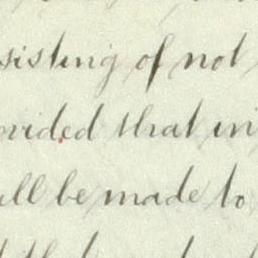 sisting of not
ovided that in
all be made to